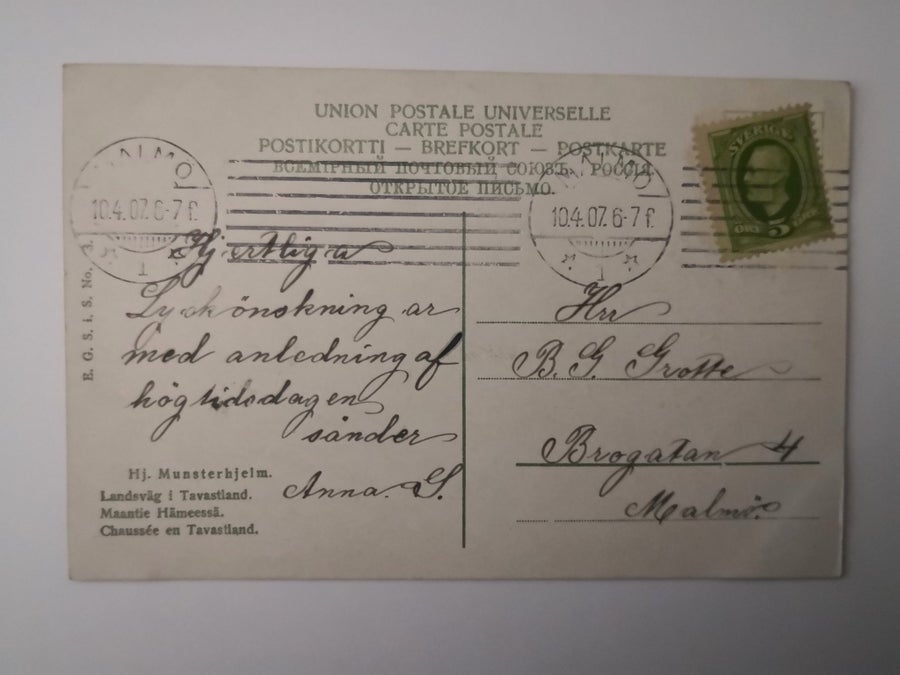 UNION POSTALE UNIVERSELLE
CARTE POSTALE
POSTIKORTTI — BREFKORT — POSTKARTE
ВСЕМІРНЫЙ ПОЧТОВЫЙ СОЮЗЪ. РОССІЯ.
ОТКРЫТОЕ ПИСЬМО.
MALMÖ
10.4.07. 6-7 f.
1
MALMÖ
10.4.07. 6-7 f.
1
SVERIGE
ÖRE 5 ÖRE
E. G. S. i. S. No.
Hjertliga
Lyckönskningar
med anledning af
högtidsdagen
sänder
Anna. S.
Hrr
B. G. Grotte
Brogatan 4
Malmö.
Hj. Munsterhjelm.
Landsväg i Tavastland.
Maantie Hämeessä.
Chaussée en Tavastland.